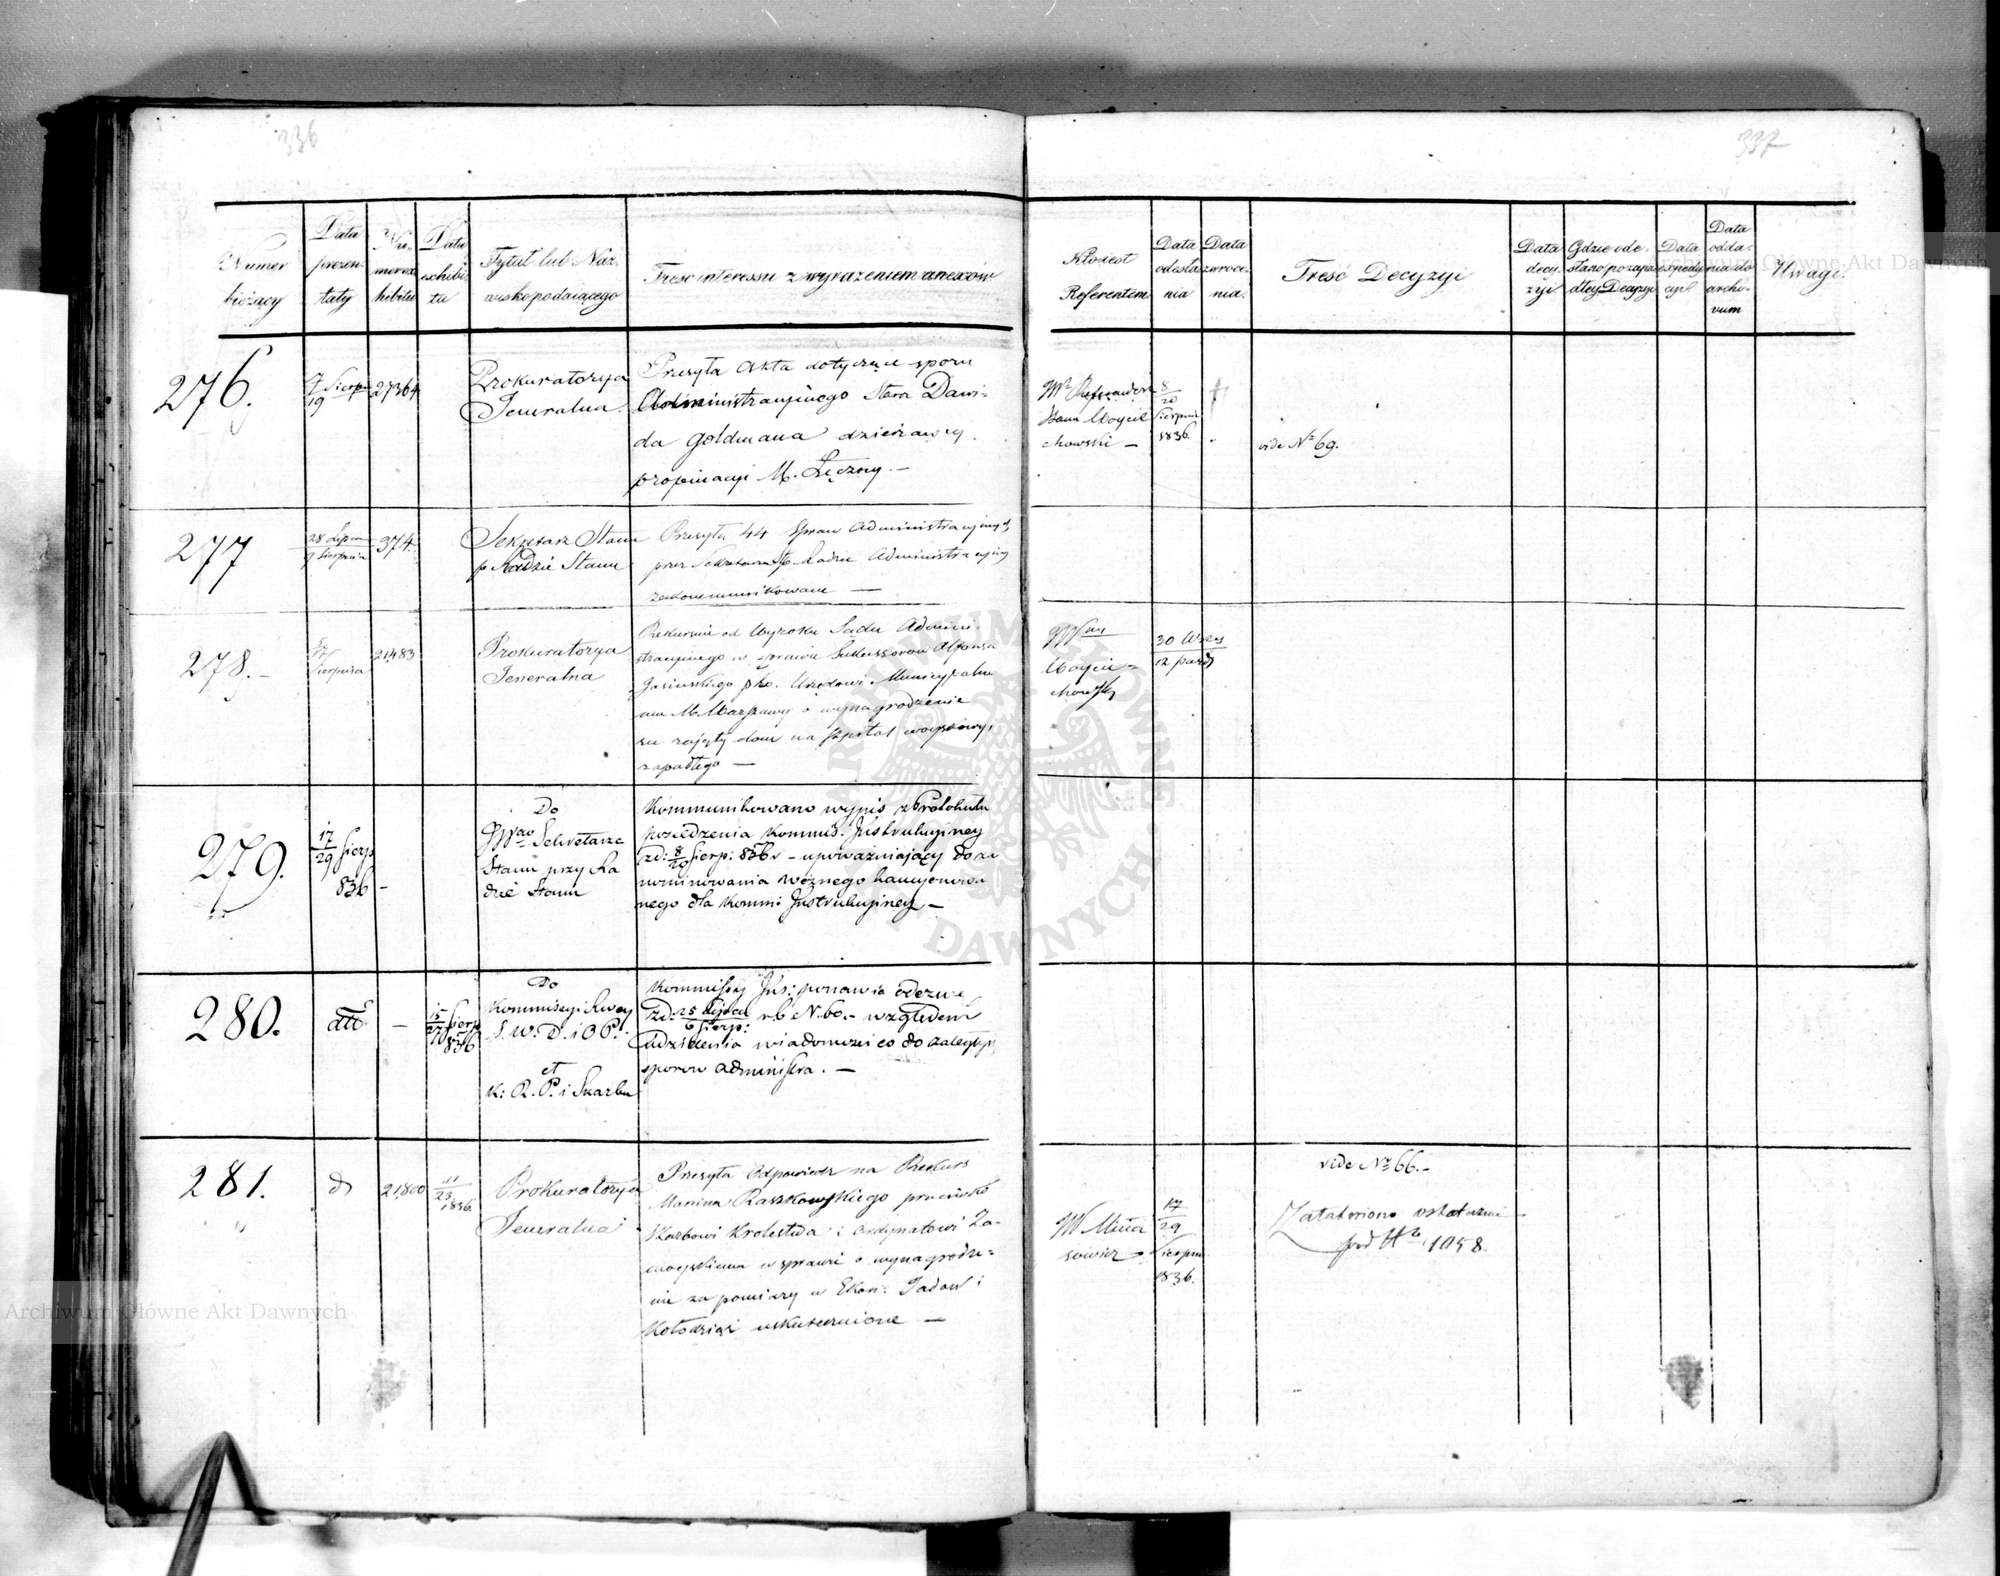 336
337
Numer bieżący
Data prezentaty
Numer exhibitu
Data exhibita
Tytuł lub Nazwisko podaiącego
Treść interessu z wyrażeniem anexów
Kto iest Referentem
Data odesłania
Data zwrócenia
Treść Decyzyi
Data decyzyi
Gdzie odesłano po zapadłey Decyzyi
Data expedycyi
Data oddania do archivum
Uwagi
276.
7/19 Sierp
27364
Prokuratorya
Jeneralna.
Przesyła Akta dotyczące sporu
Administracyinego Staroz. Dawi-
da Goldmana dzierżawcy
propinacyi M. Łęczny. —
Wº Referendarz
Stanu Woycie
chowski —
8/20
Sierpnia
1836.
vide Nº 69.
277
28 Lipca
9 Sierpnia
374.
Sekretarz Stanu
p Radzie Stanu
Przesyła 44 Spraw Administracyinych
przez Sekretarza Sº p Radzie Administracyiney
zakommunikowane —
278.
Sierpnia
21,483
Prokuratorya
Jeneralna
Rekursuie od Wyroku Sądu Admini-
stracyinego w sprawie Sukcessorów Alfonsa
Jasinskiego pko. Urzędowi Municypalne
mu M. Warszawy o wynagrodzenie
za zajęty dom na szpital woyskowy,
zapadłego —
Woyciechowski
30 Wrześ
12 paźd
279.
17/29 Sierp
836
—
Do
JWgo Sekretarza
Stanu przy Ra
dzie Stanu
Kommunikowano wypis z Protokułu
posiedzenia Kommis. Instrukcyjney
zd: 8/20 Sierp: 836 r. – upoważniający do za
nominowania woźnego kancyonowa
nego dla Kommi: Instrukcyjney —
280.
dtto.
—
15/27 Sierp
836
Do
Kommissyi Rzwey
S. W. D. i O P.
et
K: R. P. i Skarbu
Kommissya Ins: ponawia odezwę
zd: 25 Lipca/6 Sierp: r. b N. 60. – względem
udzielenia wiadomości co do zaległych
sporów administra. —
281.
d
21,800
11/23 1836.
Prokuratorya
Jeneralna
Przesyła Odpowiedź na Rekurs
Marcina Raszkowskiego przeciwko
Skarbowi Królestwa i Ordynatowi Za-
moyskiemu w sprawie o wynagrodze-
nie za pomiary w Ekon:
uskutecznione —
W Mia
sowicz
17/29
Sierpnia
1836.
vide Nº 66.–
Zatatwiono ostatecznie
pod Nº 1058.
ARCHIWUM GŁÓWNE AKT DAWNYCH
Archiwum Główne Akt Dawnych
Archiwum Główne Akt Dawnych